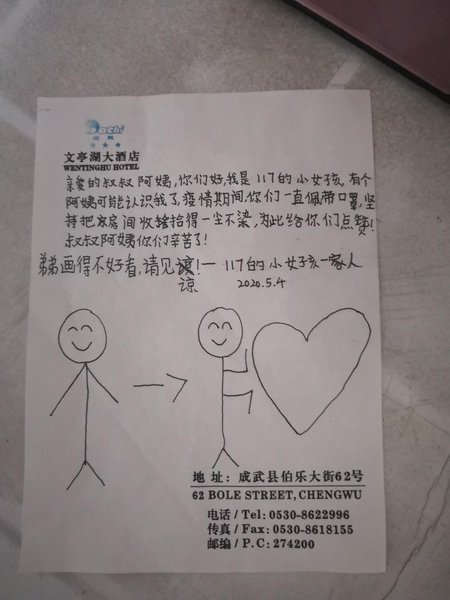 文亭湖大酒店
WENTINGHU HOTEL
亲爱的叔叔阿姨,你们好,我是117的小女孩,有个
阿姨可能认识我了,疫情期间你们一直佩带口罩,坚
持把房间收拾得一尘不染,为此给你们点赞!
叔叔阿姨你们辛苦了!
弟弟画得不好看,请见谅!— 117的小女孩一家人
谅 2020.5.4
地 址: 成武县伯乐大街62号
62 BOLE STREET, CHENGWU
电话 / Tel: 0530-8622996
传真 / Fax: 0530-8618155
邮编 / P.C: 274200